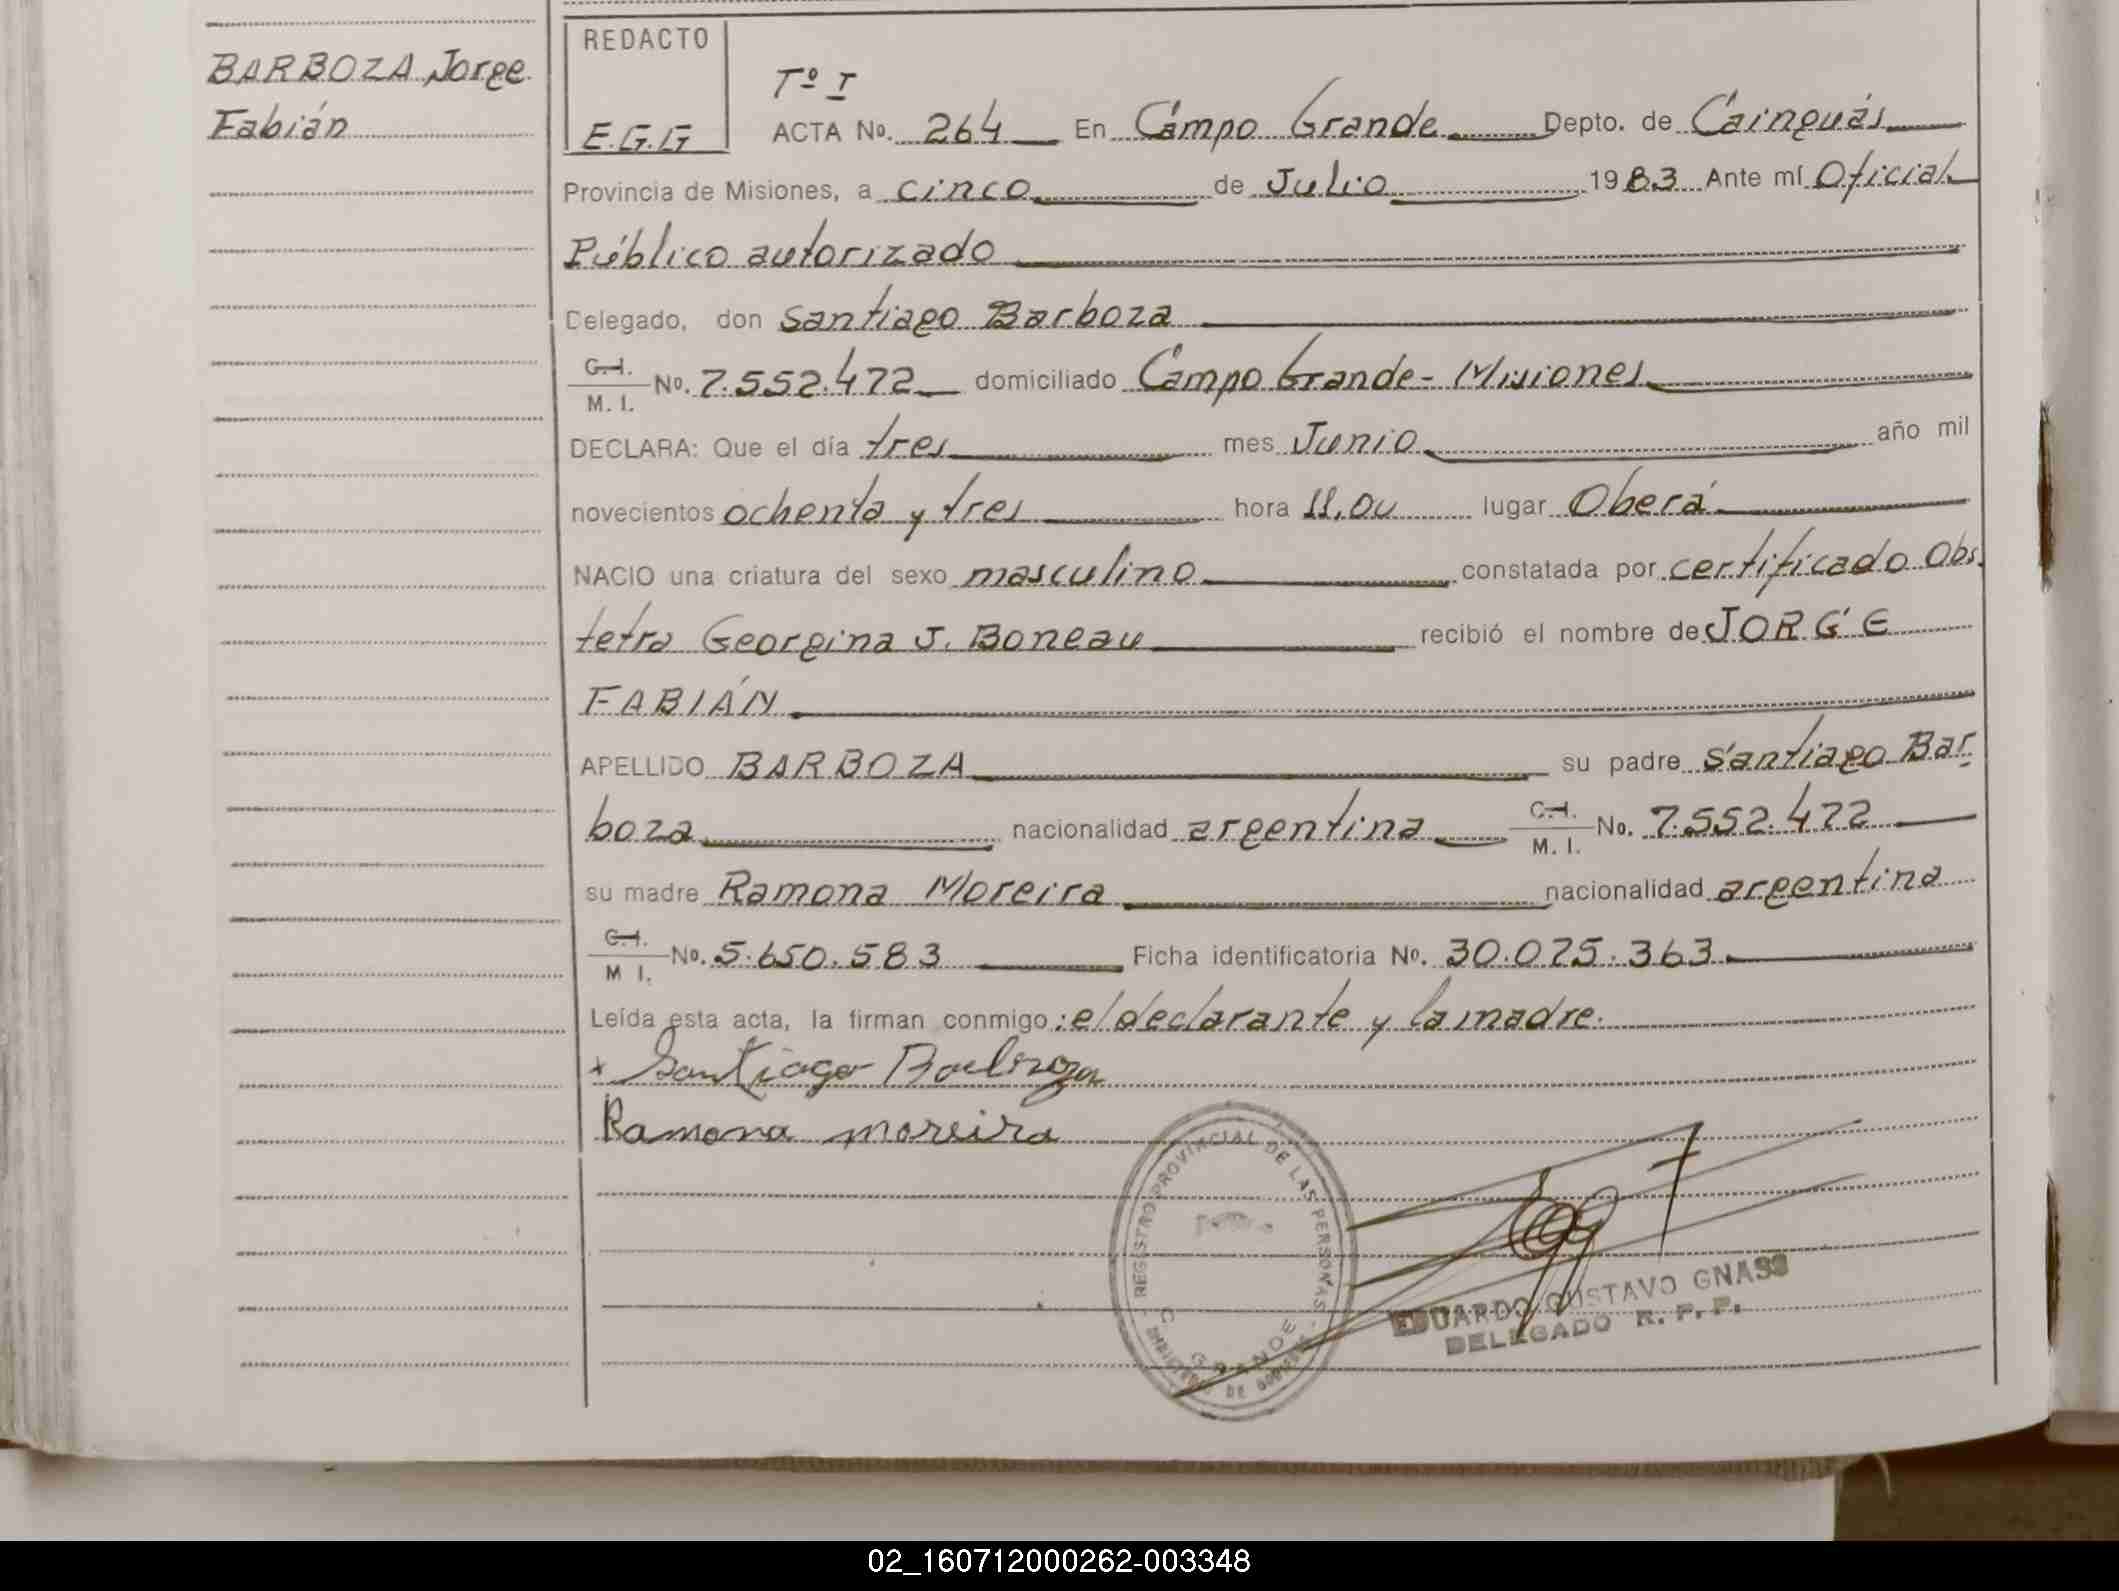 BARBOZA Jorge
Fabián
REDACTO
E.G.G
Tº I
ACTA No. 264 En Campo Grande Depto. de Cainguás
Provincia de Misiones, a cinco de Julio 1983 Ante mí Oficial
Público autorizado
Delegado, don Santiago Barboza
C.I. M. I. No. 7.552.472 domiciliado Campo Grande - Misiones
DECLARA: Que el día tres mes Junio año mil
novecientos ochenta y tres hora 11,00 lugar Oberá
NACIO una criatura del sexo masculino constatada por certificado Obs.
tetra Georgina J. Boneau recibió el nombre de JORGE
FABIÁN
APELLIDO BARBOZA su padre Santiago Bar
boza nacionalidad argentina C.I. M. I. No. 7.552.472
su madre Ramona Moreira nacionalidad argentina
C.I. M I. No. 5.650.583 Ficha identificatoria No. 30.075.363
Leída esta acta, la firman conmigo: el declarante y la madre.
x Santiago Barboza
Ramona moreira
REGISTRO PROVINCIAL DE LAS PERSONAS
C. GRANDE
MINISTERIO DE GOBIERNO
EDUARDO GUSTAVO GNASS
DELEGADO R. P. P.
02_160712000262-003348